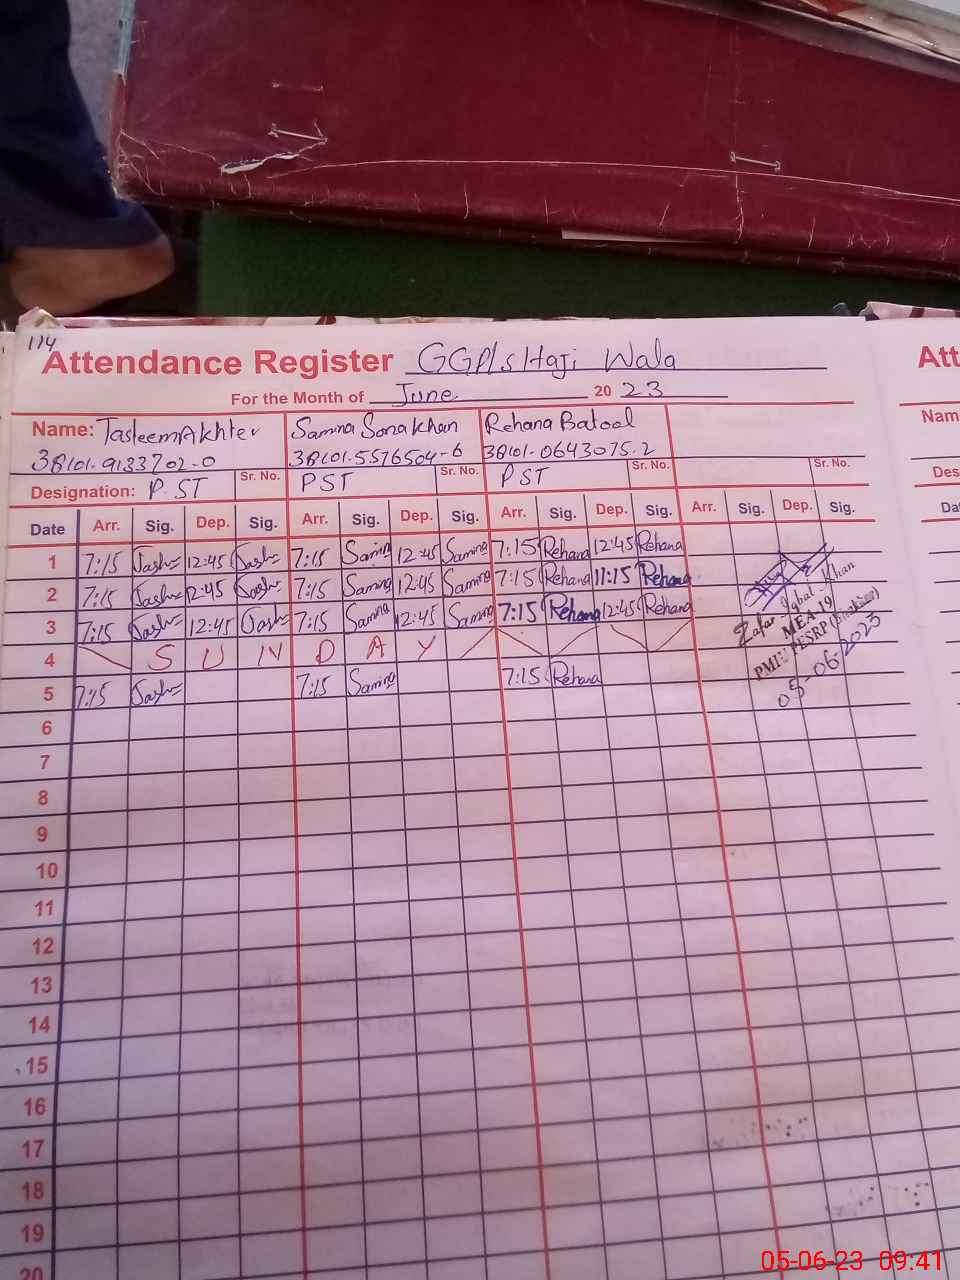 114
Attendance Register GGP/s Haji Wala
For the Month of June 2023
Name: Tasleem Akhter Samina Sona Khan Rehana Batool
38101-9133702-0 38101-5576504-6 38101-0643075-2
Designation: PST Sr. No. PST Sr. No. PST Sr. No. Sr. No.
Date Arr. Sig. Dep. Sig. Arr. Sig. Dep. Sig. Arr. Sig. Dep. Sig. Arr. Sig. Dep. Sig.
1 7:15 12:45 7:15 Samina 12:45 Samina 7:15 Rehana 12:45 Rehana
2 7:15 12:45 7:15 Samina 12:45 Samina 7:15 Rehana 11:15 Rehana
3 7:15 12:45 7:15 Samina 12:45 Samina 7:15 Rehana 12:45 Rehana
4 S U N D A Y
5 7:15 7:15 Samina 7:15 Rehana
Zafar Iqbal Khan
MEA 19
PESRP
05-06-2023
6
7
8
9
10
11
12
13
14
15
16
17
18
19
20
Att
Nam
Des
Da
05-06-23 09:41